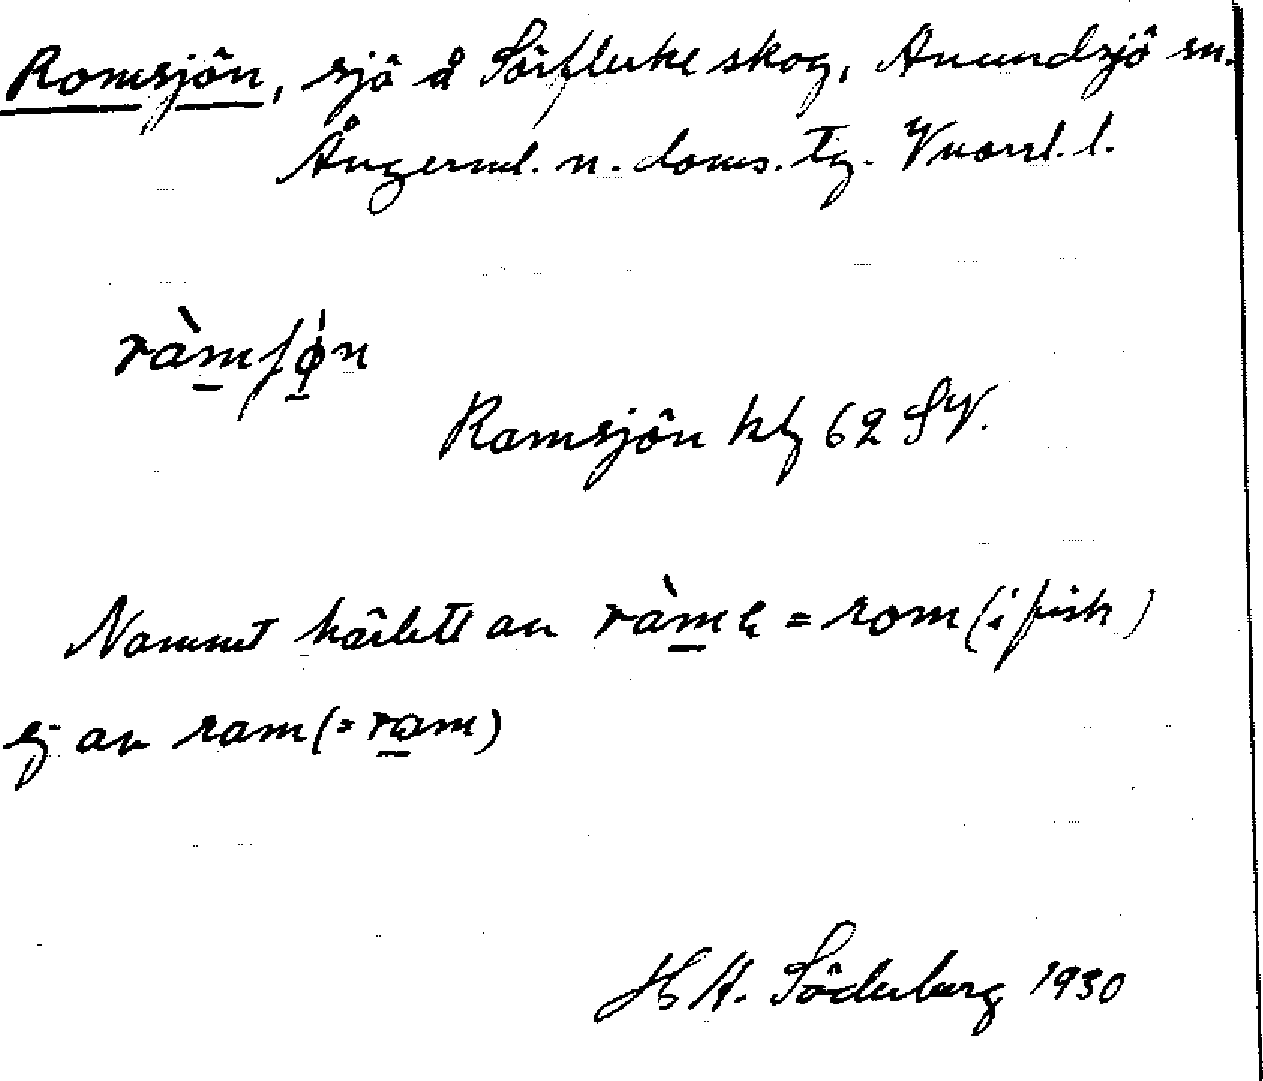 Romsjön, sjö å Sörflärke skog, Anundsjö sn.
Ångerml. n. doms. tg. Vnorrl. l.
ràmʃø̀n
Ramsjön kbl 62 SV.
Namnet härlett av ràmę = rom (i fisk)
ej av ram (= ram)
H A. Söderberg 1930